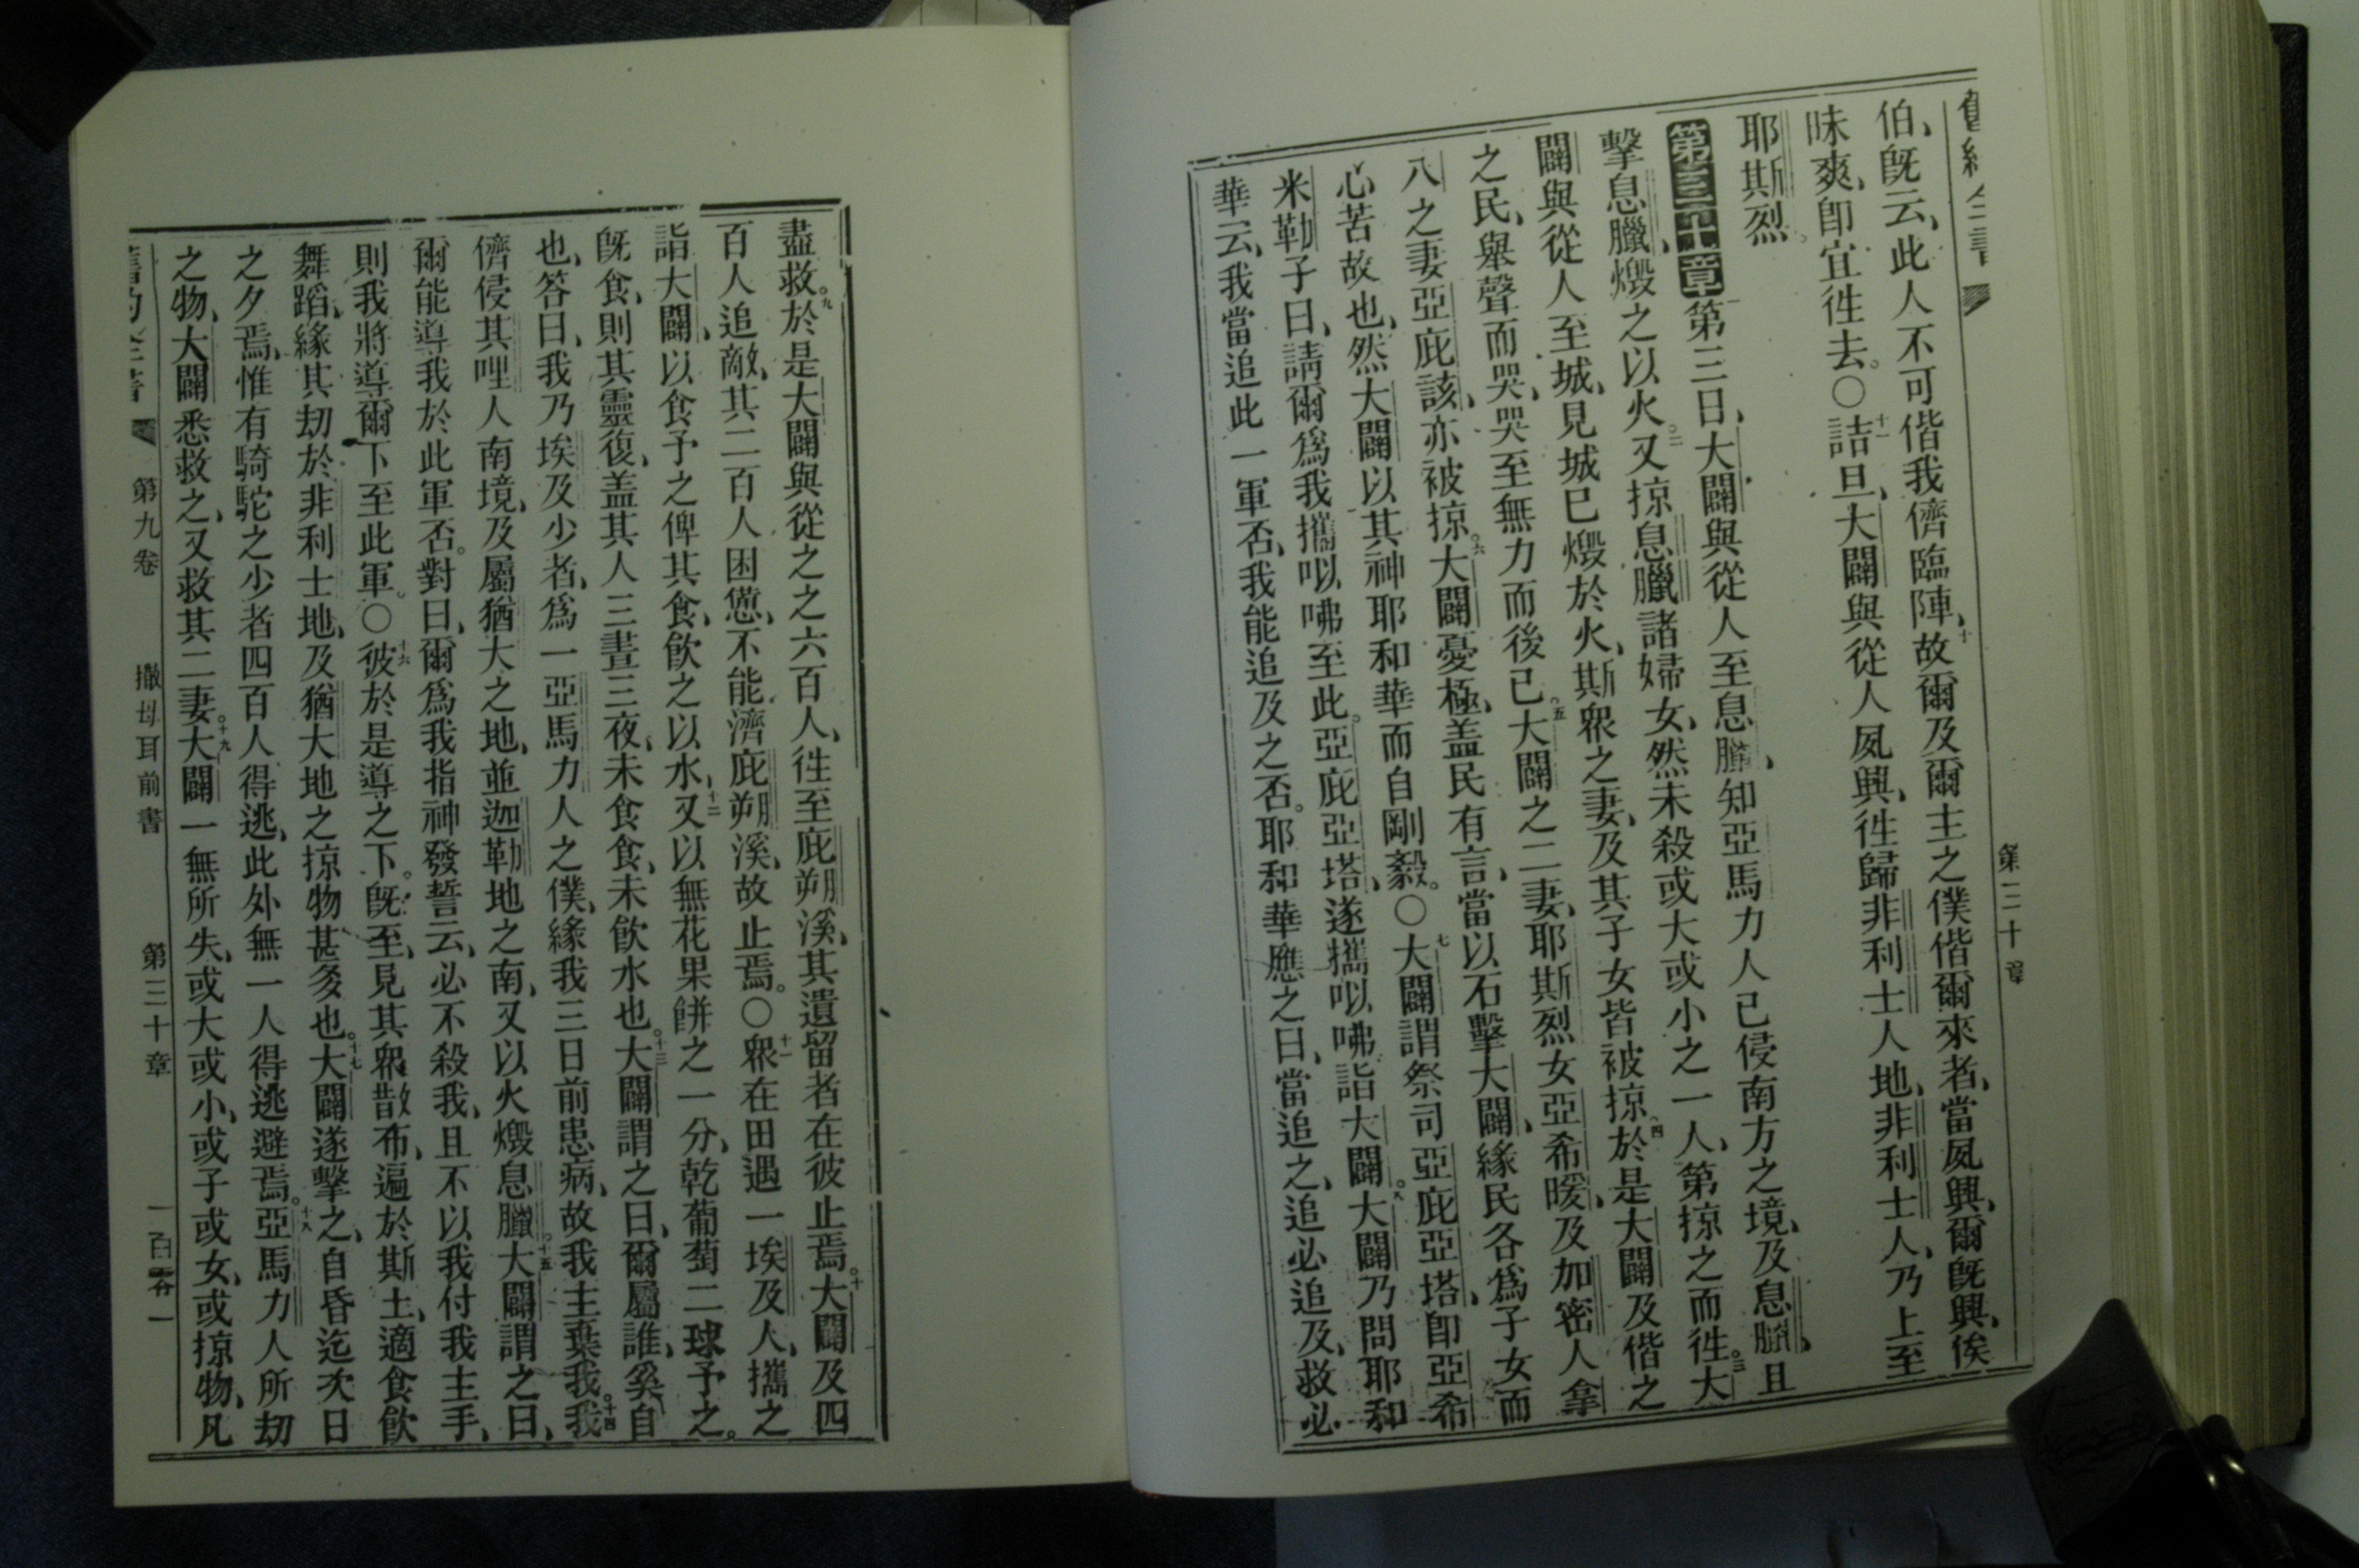 伯、旣云、此人不可偕我儕臨陣、十故爾及爾主之僕偕爾來者、當夙興、爾旣興、俟
昧爽、卽宜徃去。〇十一詰旦、大闢與從人夙興、徃歸非利士人地、非利士人、乃上至
耶斯烈。
第三十章 第三日、大闢與從人至息臘、知亞馬力人已侵南方之境、及息臘、且
擊息臘、燬之以火。二又掠息臘諸婦女、然未殺或大或小之一人、第掠之而徃。三大
闢與從人至城、見城已燬於火、斯衆之妻、及其子女皆被掠。四於是大闢及偕之
之民、舉聲而哭、哭至無力而後已。五大闢之二妻、耶斯烈女亞希暖、及加密人拿
八之妻亞庇該、亦被掠。六大闢憂極、盖民有言、當以石擊大闢、緣民各爲子女而
心苦故也、然大闢以其神耶和華而自剛毅。〇七大闢謂祭司亞庇亞塔、卽亞希
米勒子曰、請爾爲我攜㕽咈至此。亞庇亞塔、遂攜㕽咈詣大闢。八大闢乃問耶和
華云、我當追此一軍否、我能追及之否。耶和華應之曰、當追之、追必追及、救必
第三十章
盡救。九於是大闢與從之之六百人、徃至庇朔溪、其遺留者在彼止焉。十大闢及四
百人追敵、其二百人困憊、不能濟庇朔溪、故止焉。〇十一衆在田遇一埃及人、攜之
詣大闢、以食予之俾其食、飮之以水、十二又以無花果餅之一分、乾葡萄二球予之。
旣食、則其靈復、盖其人三晝三夜、未食食、未飮水也。十三大闢謂之曰、爾屬誰、奚自
也、答曰、我乃埃及少者、爲一亞馬力人之僕、緣我三日前患病、故我主棄我。十四我
儕侵其哩人南境、及屬猶大之地、並迦勒地之南、又以火燬息臘。十五大闢謂之曰、
爾能導我於此軍否。對曰、爾爲我指神發誓云、必不殺我、且不以我付我主手、
則我將導爾下至此軍。〇十六彼於是導之下。旣至、見其衆散布、遍於斯土、適食飮
舞蹈、緣其刧於非利士地、及猶大地之掠物甚多也。十七大闢遂擊之、自昏迄次日
之夕焉、惟有騎駝之少者四百人得逃、此外無一人得逃避焉。十八亞馬力人所刧
之物、大闢悉救之、又救其二妻。十九大闢一無所失、或大或小、或子或女、或掠物、凡
第九卷 撒母耳前書 第三十章